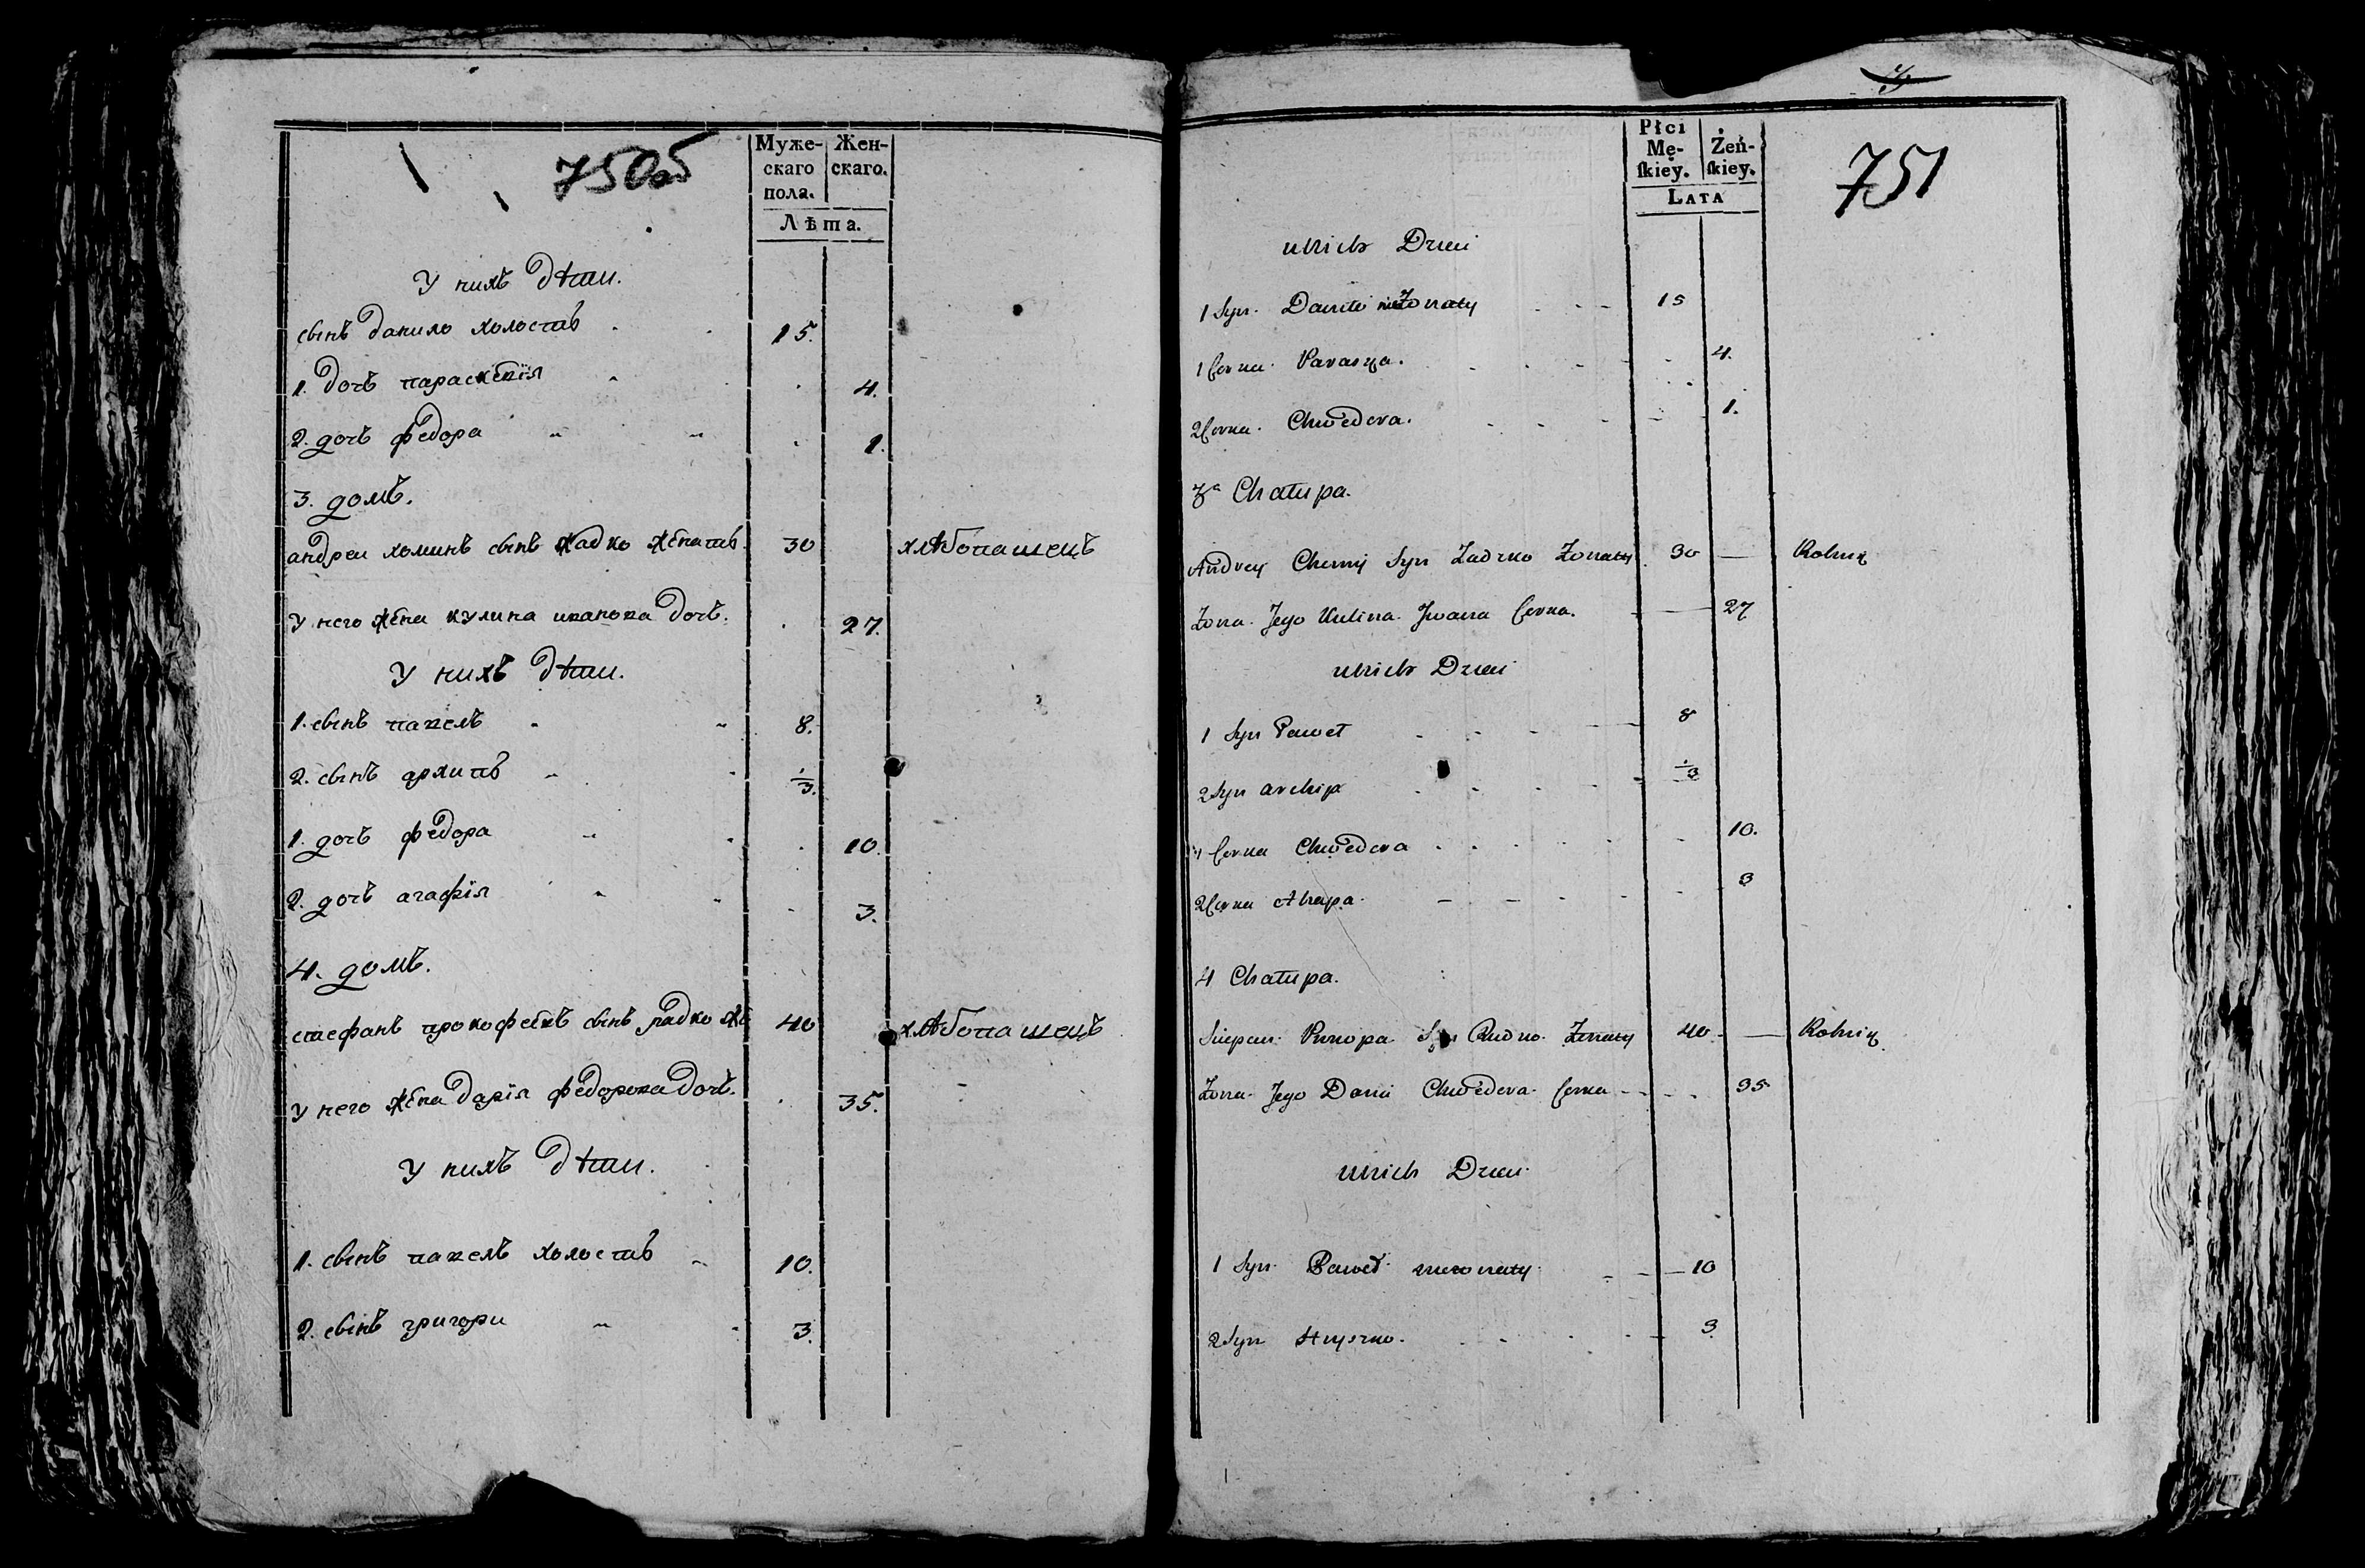 750об
Муже-
скаго
пола.
Жен-
скаго.
Лѣта.
У нихъ дѣти.
сынъ данило холостъ 15.
1. дочь параскевїя 4.
2. дочь федора 1.
3. домъ.
андреи хоминъ сынъ жадко женатъ 30 хлѣбопашецъ
У него жена кулина иванова дочь. 27.
У нихъ дѣти.
1. сынъ павелъ 8.
2. сынъ архипъ 1/3.
1. дочь федора 10.
2. дочь агафїя 3.
4. домъ.
стефанъ прокофевъ сынъ радко же 40 хлѣбопашецъ
У него жена дарїя федорова дочь. 35.
У нихъ дѣти.
1. сынъ павелъ холостъ 10.
2. сынъ григори 3.
751
Płci
Mę-
ſkiey.
Żeń-
ſkiey.
LATA
u Nich Dzieci
1 Syn. Daniło nieżonaty 15
1 Corka. Paraska. 4.
2 Corka. Chwedora. 1.
3a Chałupa.
Andrey Chomy Syn Żadzko Żonaty 30 — Rolnik
Żona Jego Kulina Jwana Corka. 27
u Nich Dzieci
1 Syn Paweł 8
2 Syn archip 1/3
1 Corka Chwedora 10.
2 Corka Ahapa. 3
4 Chałupa.
Stepan Prokopa Syn Rudko Żonaty 40 — Rolnik
Żona Jego Daria Chwedora Corka 35
u Nich Dzieci
1 Syn Paweł nieżonaty 10
2 Syn 3